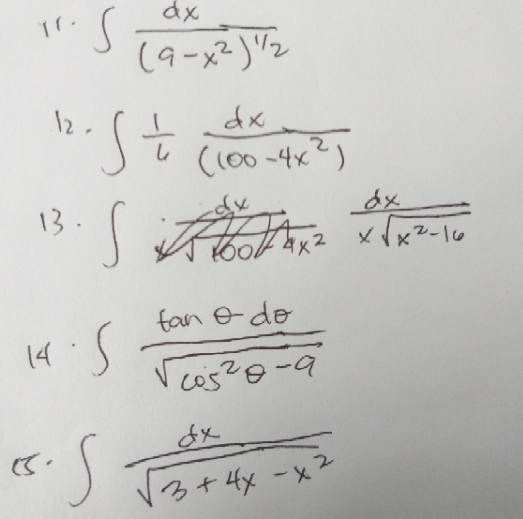 11. ∫ dx / (9-x²)^1/2
12. ∫ 1/6 dx / (100-4x²)
13. ∫ dx / x√(x²-16)
14. ∫ tan θ dθ / √(cos²θ-9)
15. ∫ dx / √(3+4x-x²)